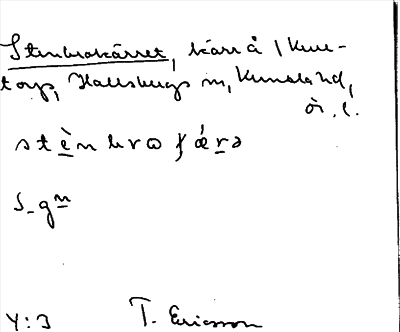 Stenbrokärret, kärr å 1 Kumla-
torp, Hallsbergs sn, Kumla hd,
ör. l.
stὲnbrɷ ʄǽrə
S-gn
Y:3 T. Ericsson